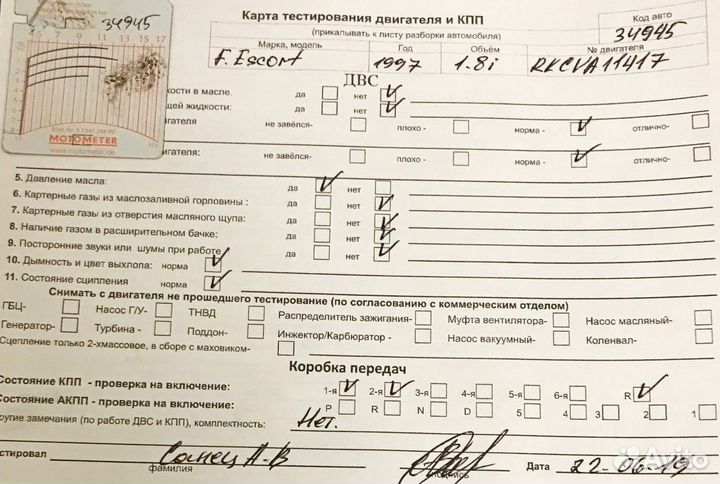 34945
5 8 11 14 17
MOTOMETER
www.motometer.de
Карта тестирования двигателя и КПП
(прикалывать к листу разборки автомобиля)
Код авто
34945
Марка, модель Год Объём № двигателя
F. Escort 1997 1.8i RKCVA11417
ДВС
кости в масле. да нет ✓
щей жидкости: да нет ✓
игателя не завёлся- плохо - норма - ✓ отлично-
игателя: не завёлся- плохо - норма - ✓ отлично-
5. Давление масла: да ✓ нет
6. Картерные газы из маслозаливной горловины : да нет ✓
7. Картерные газы из отверстия масляного щупа: да нет ✓
8. Наличие газом в расширительном бачке: да нет ✓
9. Посторонние звуки или шумы при работе да нет ✓
10. Дымность и цвет выхлопа: норма ✓
11. Состояние сцепления норма ✓
Снимать с двигателя не прошедшего тестирование (по согласованию с коммерческим отделом)
ГБЦ- Насос Г/У- ТНВД Распределитель зажигания- Муфта вентилятора- Насос масляный-
Генератор- Турбина - Поддон- Инжектор/Карбюратор - Насос вакуумный- Коленвал-
Сцепление только 2-хмассовое, в сборе с маховиком-
Коробка передач
Состояние КПП - проверка на включение: 1-я ✓ 2-я ✓ 3-я 4-я 5-я 6-я R ✓
Состояние АКПП - проверка на включение: P R N D 5 4 3 2 1
ругие замечания (по работе ДВС и КПП), комплектность: Нет.
стировал Санец А-В Дата 22-06-19
фамилия подпись
Avito